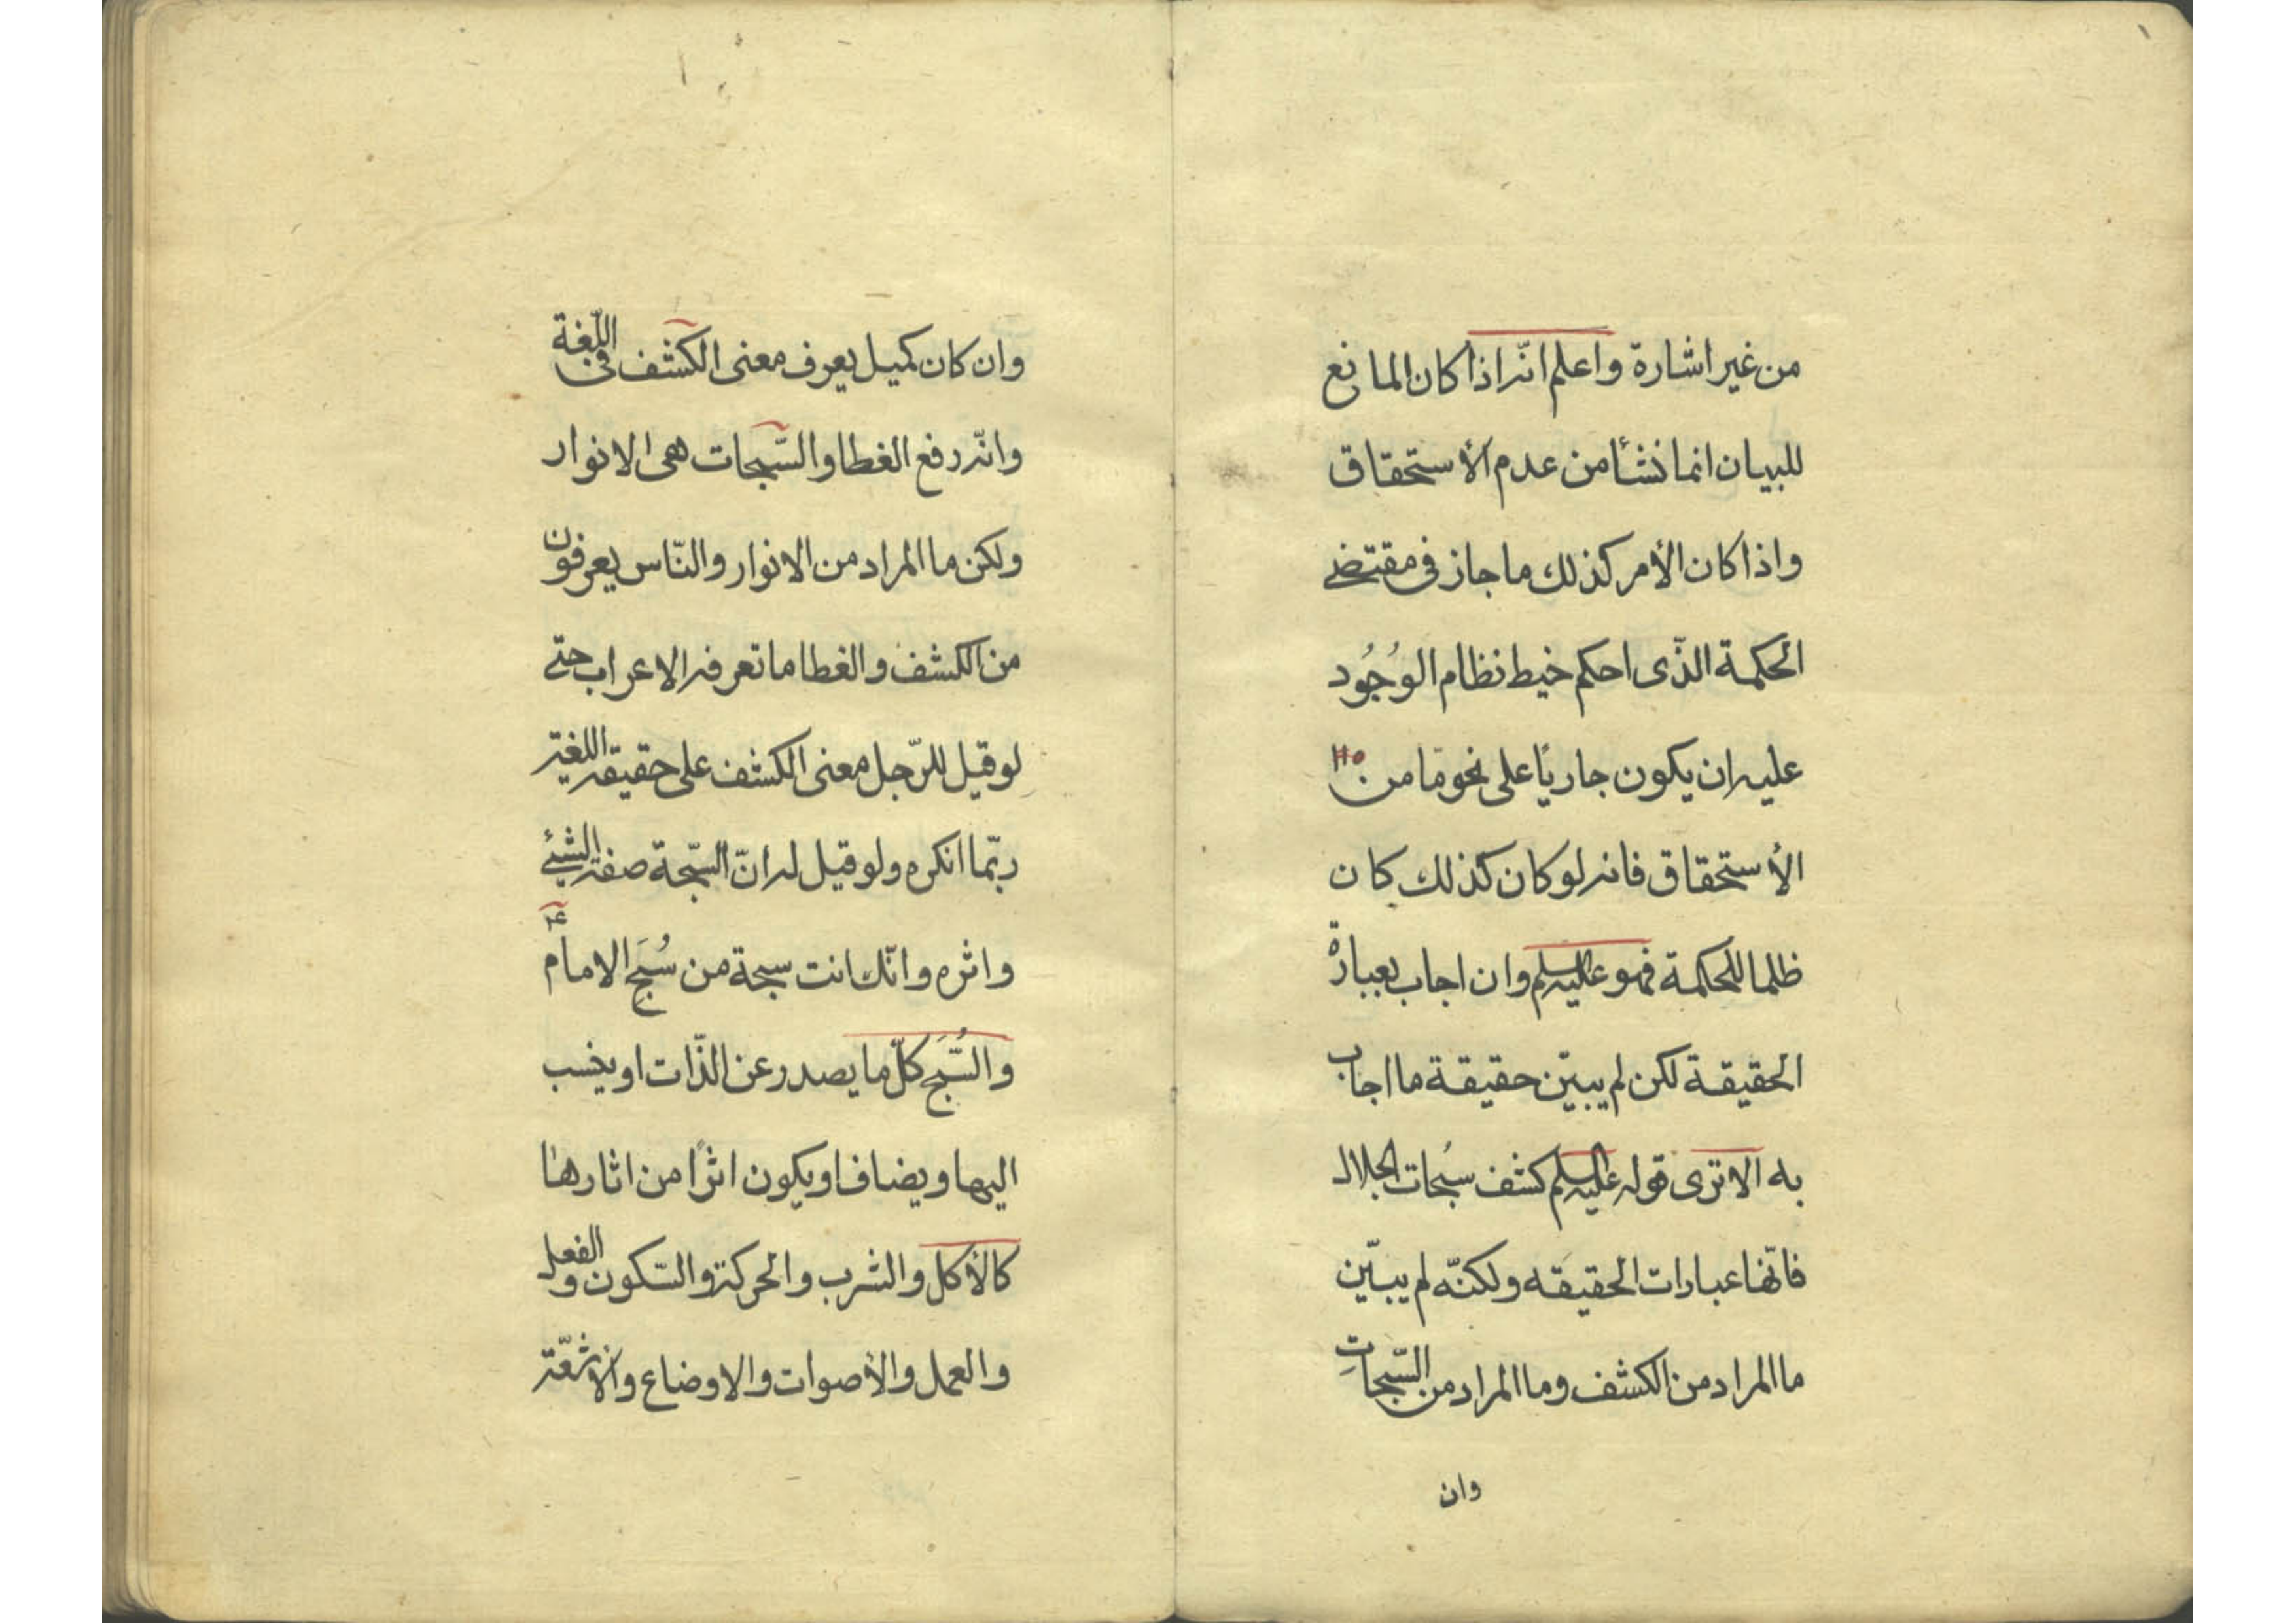 من غير اشارة واعلم انّه اذا كان المانع
للبيان انما نشأ من عدم الأستحقاق
واذا كان الأمر كذلك ما جاز فى مقتضى
الحكمة الذّى احكم خيط نظام الوُجُود
عليه ان يكون جاريًا على نحو ما من
الأستحقاق فانه لو كان كذلك كان
ظلما للحكمة فهو عليه السلم وان اجاب بعبارة
الحقيقة لكن لم يبيّن حقيقة ما اجاب
به الا ترى قوله عليه السلم كشف سُبحات الجلال
فانّها عبارات الحقيقه ولكنّه لم يبيّن
ما المراد من الكشف وما المراد من السّبحاتِ
وان
وان كان كميل يعرف معنى الكشف فى اللّغة
وانّه رفع الغطا والسّبحات هى الانوار
ولكن ما المراد من الانوار والنّاس يعرفون
من الكشف والغطا ما تعرفه الاعراب حتى
لو قيل للرّجل معنى الكشف على حقيقه اللغية
ربّما انكره ولو قيل له انّ السّبحة صفة الشئ
واثره وانّك انت سبحة من سُبَح الامام ع
والسُّبَح كلّ ما يصدر عن الذّات او ينسب
اليها ويضاف او يكون اثرًا من اثارها
كالأكل والشرب والحركة والسّكون والفعل
والعمل والأصوات والاوضاع والأشعّة